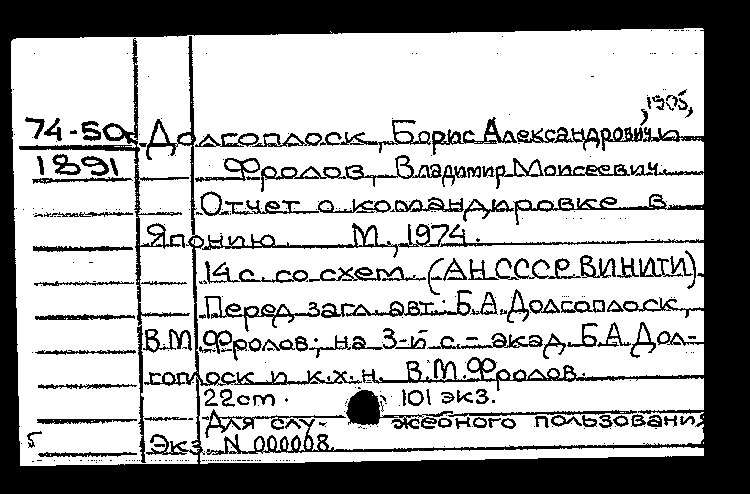 ,1905,
74-50 Долгоплоск, Борис Александрович и
1891 Фролов, Владимир Моисеевич.
Отчет о командировке в
Японию. М., 1974.
14 с. со схем. (АН СССР ВИНИТИ).
Перед загл. авт.: Б.А. Долгоплоск,
В.М. Фролов; на 3-й с. - акад. Б.А. Дол-
гоплоск и к.х.н. В.М. Фролов.
22 см. 101 экз.
Для слу- жебного пользования
Экз. N 000008.